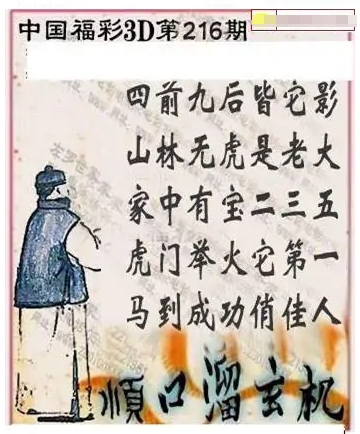 中国福彩3D第216期
四前九后皆它影
山林无虎是老大
家中有宝二三五
虎门举火它第一
马到成功俏佳人
顺口溜玄机